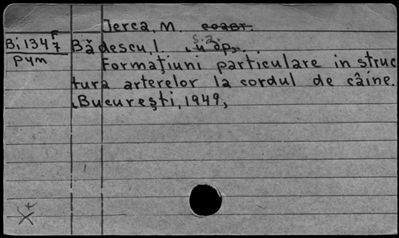 Jerca, M. соавт.
Bi 1347 Bădescu, I. и др.
Рум Formaţiuni particulare in struc
tura arterelor la cordul de câine.
Bucureşti, 1949,